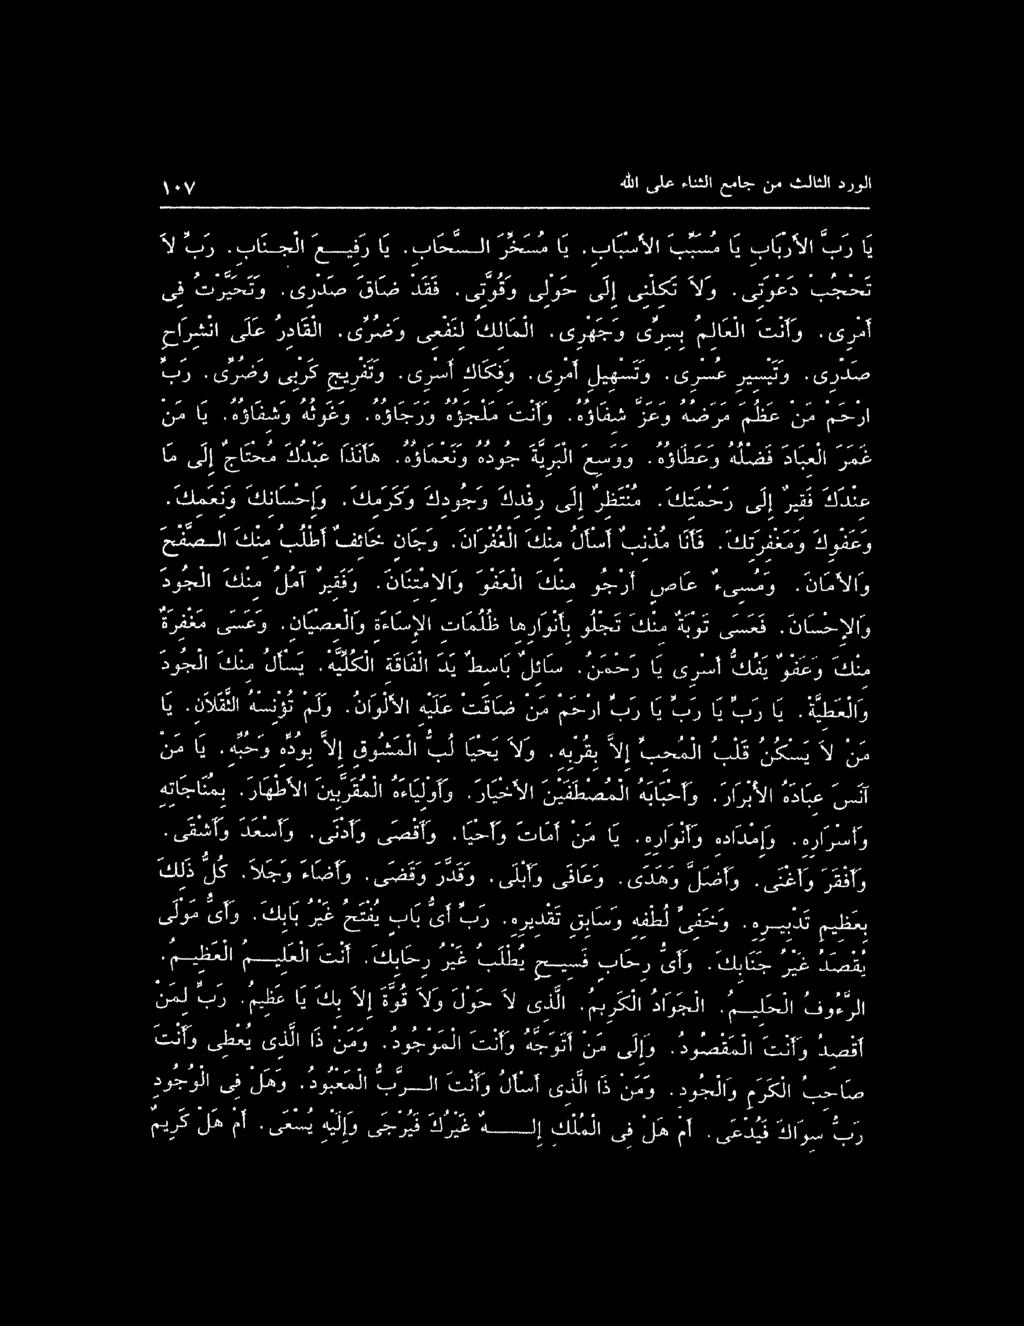 الورد الثالث من جامع الثناء على الله
١٠٧
يَا رَبَّ الأَرْبَابِ يَا مُسَبِّبَ الأَسْبَابِ. يَا مُسَخِّرَ السَّحَابِ. يَا رَفِيعَ الْجَنَابِ. رَبِّ لاَ
تَحْجُبْ دَعْوَتِى. وَلاَ تَكِلْنِى إِلَى حَوْلِى وَقُوَّتِى. فَقَدْ ضَاقَ صَدْرِى. وَتَحَيَّرْتُ فِى
أَمْرِى. وَأَنْتَ الْعَالِمُ بِسِرِّى وَجَهْرِى. الْمَالِكُ لِنَفْعِى وَضُرِّى. الْقَادِرُ عَلَى انْشِرَاحِ
صَدْرِى. وَتَيْسِيرِ عُسْرِى. وَتَسْهِيلِ أَمْرِى. وَفِكَاكِ أَسْرِى. وَتَفْرِيجِ كَرْبِى وَضُرِّى. رَبِّ
ارْحَمْ مَنْ عَظُمَ مَرَضُهُ وَعَزَّ شِفَاؤُهُ. وَأَنْتَ مَلْجَؤُهُ وَرَجَاؤُهُ. وَغَوْثُهُ وَشِفَاؤُهُ. يَا مَنْ
غَمَرَ الْعِبَادَ فَضْلُهُ وَعَطَاؤُهُ. وَوَسِعَ الْبَرِيَّةَ جُودُهُ وَنَعْمَاؤُهُ. هَأَنَذَا عَبْدُكَ مُحْتَاجٌ إِلَى مَا
عِنْدَكَ فَقِيرٌ إِلَى رَحْمَتِكَ. مُنْتَظِرٌ إِلَى رِفْدِكَ وَجُودِكَ وَكَرَمِكَ. وَإِحْسَانِكَ وَنِعَمِكَ.
وَعَفْوِكَ وَمَغْفِرَتِكَ. فَأَنَا مُذْنِبٌ أَسْأَلُ مِنْكَ الْغُفْرَانَ. وَجَانٍ خَائِفٌ أَطْلُبُ مِنْكَ الصَّفْحَ
وَالأَمَانَ. وَمُسِىءٌ عَاصٍ أَرْجُو مِنْكَ الْعَفْوَ وَالاِمْتِنَانَ. وَفَقِيرٌ آمُلُ مِنْكَ الْجُودَ
وَالإِحْسَانَ. فَعَسَى تَوْبَةٌ مِنْكَ تَجْلُو بِأَنْوَارِهَا ظُلُمَاتِ الإِسَاءَةِ وَالْعِصْيَانِ. وَعَسَى مَغْفِرَةٌ
مِنْكَ وَعَفْوٌ يَفُكُّ أَسْرِى يَا رَحْمَنُ. سَائِلٌ بَاسِطٌ يَدَ الْفَاقَةِ الْكُلِّيَّةِ. يَسْأَلُ مِنْكَ الْجُودَ
وَالْعَطِيَّةَ. يَا رَبِّ يَا رَبِّ يَا رَبِّ ارْحَمْ مَنْ ضَاقَتْ عَلَيْهِ الأَلْوَانُ. وَلَمْ تُؤْنِسْهُ الثَّقَلاَنِ. يَا
مَنْ لاَ يَسْكُنُ قَلْبُ الْمُحِبِّ إِلاَّ بِقُرْبِهِ. وَلاَ يَحْيَا لُبُّ الْمَشُوقِ إِلاَّ بِوُدِّهِ وَحُبِّهِ. يَا مَنْ
آنَسَ عِبَادَهُ الأَبْرَارَ. وَأَحْبَابَهُ الْمُصْطَفَيْنَ الأَخْيَارَ. وَأَوْلِيَاءَهُ الْمُقَرَّبِينَ الأَطْهَارَ. بِمُنَاجَاتِهِ
وَأَسْرَارِهِ. وَإِمْدَادِهِ وَأَنْوَارِهِ. يَا مَنْ أَمَاتَ وَأَحْيَا. وَأَقْصَى وَأَدْنَى. وَأَسْعَدَ وَأَشْقَى.
وَأَفْقَرَ وَأَغْنَى. وَأَضَلَّ وَهَدَى. وَعَافَى وَأَبْلَى. وَقَدَّرَ وَقَضَى. وَأَضَاءَ وَجَلاَ. كُلُّ ذَلِكَ
بِعَظِيمِ تَدْبِيرِهِ. وَخَفِىِّ لُطْفِهِ وَسَابِقِ تَقْدِيرِهِ. رَبِّ أَىُّ بَابٍ يُفْتَحُ غَيْرُ بَابِكَ. وَأَىُّ مَوْلًى
يُقْصَدُ غَيْرُ جَنَابِكَ. وَأَىُّ رِحَابٍ فَسِيحٍ يُطْلَبُ غَيْرُ رِحَابِكَ. أَنْتَ الْعَلِيمُ الْعَظِيمُ.
الرَّءُوفُ الْحَلِيمُ. الْجَوَادُ الْكَرِيمُ. الَّذِى لاَ حَوْلَ وَلاَ قُوَّةَ إِلاَّ بِكَ يَا عَظِيمُ. رَبِّ لِمَنْ
أَقْصِدُ وَأَنْتَ الْمَقْصُودُ. وَإِلَى مَنْ أَتَوَجَّهُ وَأَنْتَ الْمَوْجُودُ. وَمَنْ ذَا الَّذِى يُعْطِى وَأَنْتَ
صَاحِبُ الْكَرَمِ وَالْجُودِ. وَمَنْ ذَا الَّذِى أَسْأَلُ وَأَنْتَ الرَّبُّ الْمَعْبُودُ. وَهَلْ فِى الْوُجُودِ
رَبٌّ سِوَاكَ فَيُدْعَى. أَمْ هَلْ فِى الْمُلْكِ إِلهٌ غَيْرُكَ فَيُرْجَى وَإِلَيْهِ يُسْعَى. أَمْ هَلْ كَرِيمٌ